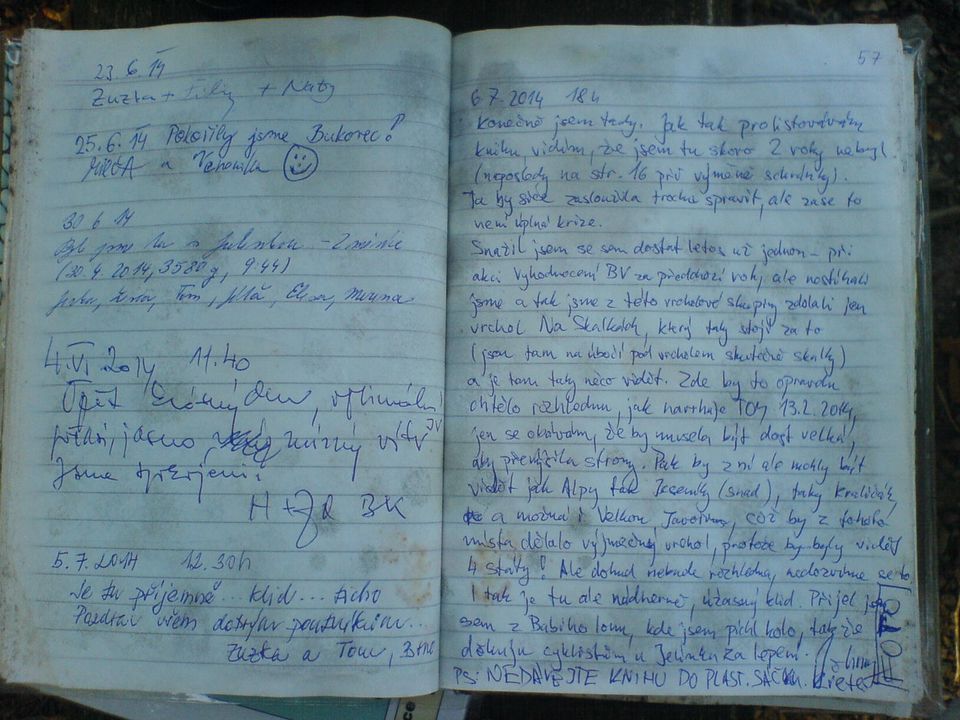 23. 6. 14
Zuzka + Filip + Naty
25. 6. 14 Pokořily jsme Bukovec!
MIRČA a Veronika
30 6 14
Byli jsme tu s
(30.4.2014, 3580 g, 9:44)
Tom,
4. VI. 2014 11.40
Opět krásný den, optimální
počasí, jasno, mírný vítr JV
Jsme spokojeni.
H + J BK
5. 7. 2014 12.30h
Je tu příjemně... klid... ticho
Pozdrav všem dobrým poutníkům...
Zuzka a Tom, Brno
57
6 7. 2014 18 h
Konečně jsem tady. Jak tak prolistovávám
knihu, vidím, že jsem tu skoro 2 roky nebyl
(naposledy na str. 16 při výměně schránky).
Ta by sice zasloužila trochu spravit, ale zase to
není úplná krize.
Snažil jsem se sem dostat letos už jednou – při
akci Vyhodnocení BV za předchozí rok, ale nestíhali
jsme a tak jsme z této vrcholové skupiny zdolali jen
vrchol Na Skalkách, který taky stojí za to
(jsou tam na úbočí pod vrcholem skutečné skalky)
a je tam taky něco vidět. Zde by to opravdu
chtělo rozhlednu, jak navrhuje TOM 13.2.2014,
jen se obávám, že by musela být dost velká,
aby převýšila stromy. Pak by z ní ale mohly být
vidět jak Alpy tak Jeseníky (snad), taky Králičák
a možná i Velkou Javořinu, což by z tohoto
místa dělalo výjimečný vrchol, protože by byly vidět
4 státy! Ale dokud nebude rozhledna, nedozvíme se to.
I tak je tu ale nádherně, úžasný klid. Přijel jsem
sem z Babího lomu, kde jsem píchl kolo, takže
děkuju cyklistům u Jelínka za lepení.
PS: NEDÁVEJTE KNIHU DO PLAST. SÁČKU.